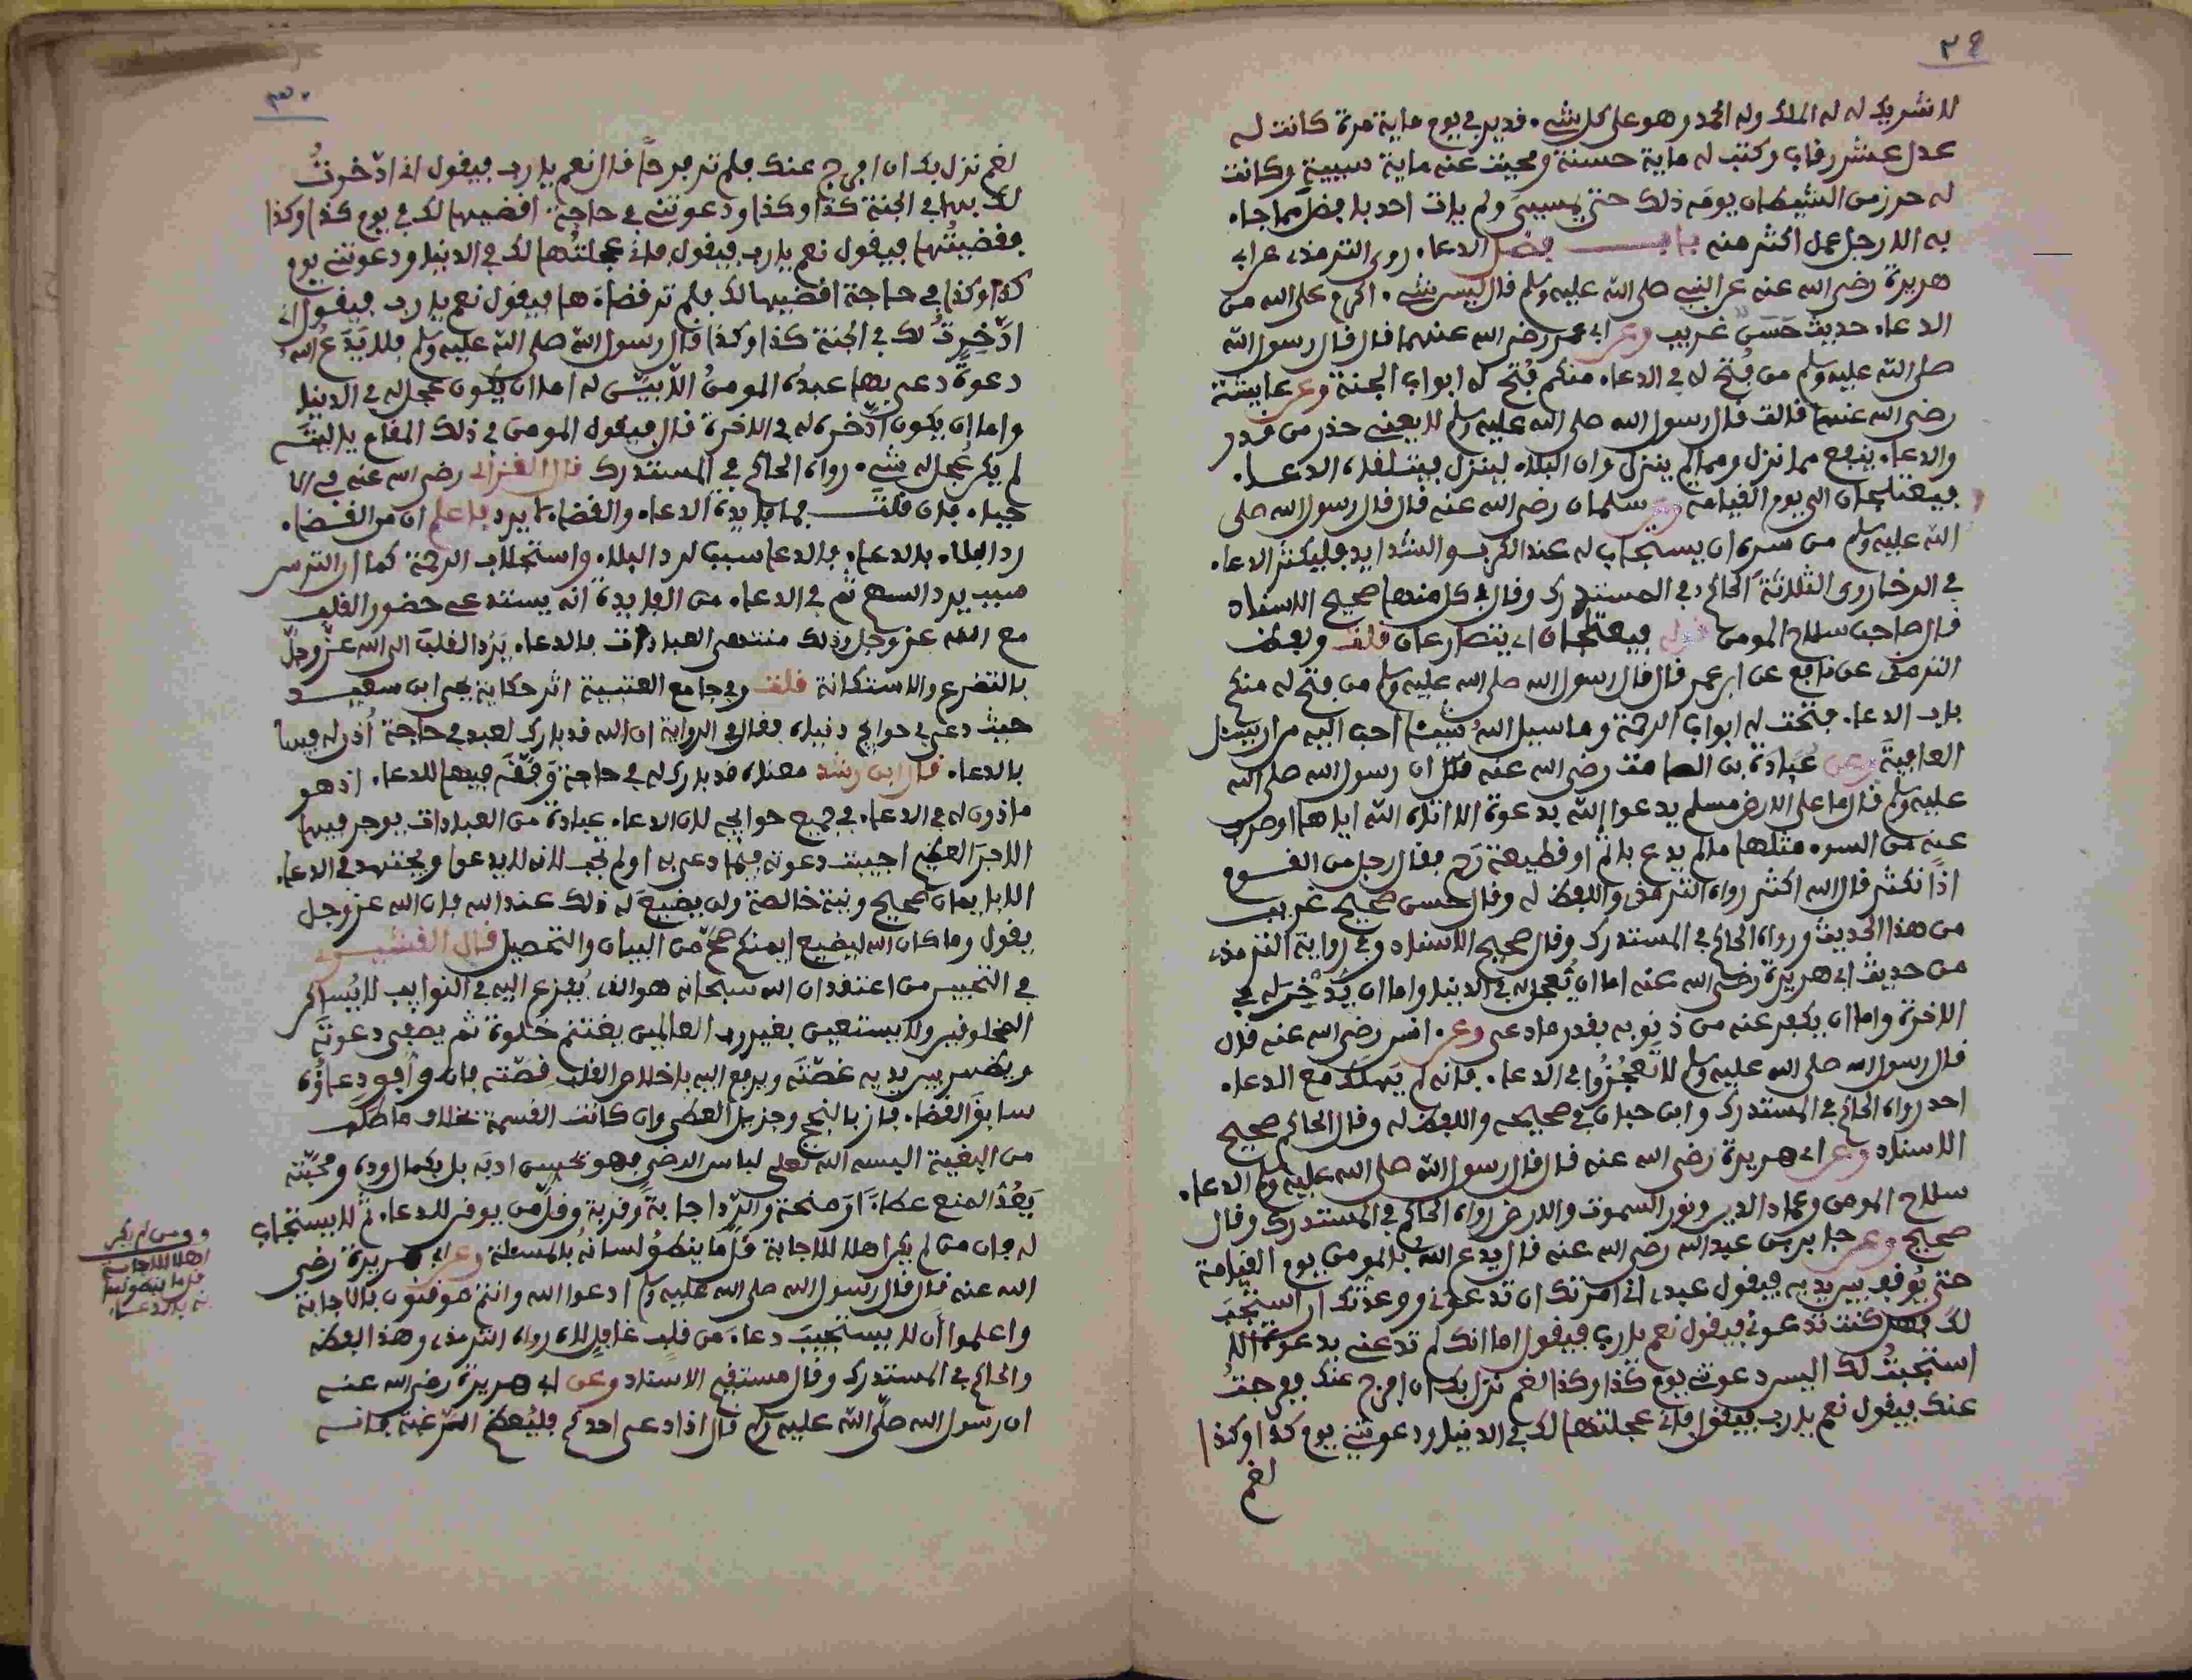 ٢٩
لا شريك له له الملك وله الحمد وهو على كل شيء قدير في يوم ماية مرة كانت له
عدل عشر رقاب وكتب له ماية حسنة ومحيت عنه ماية سيية وكانت
له حرز من الشيطان يومه ذلك حتى يمسي ولم يات احد بافضل مما جاء
به الا رجل عمل اكثر منه باب فضل الدعاء روى الترمذي عن ابي
هريرة رضي الله عنه عن النبي صلى الله عليه وسلم قال ليس شيء اكرم على الله من
الدعاء حديث حسن غريب وعن ابن عمر رضي الله عنهما قال قال رسول الله
صلى الله عليه وسلم من فُتح له في الدعاء منكم فُتح له ابواب الجنة وعن عايشة
رضي الله عنها قالت قال رسول الله صلى الله عليه وسلم لا يغني حذر من قدر
والدعاء ينفع مما نزل ومما لم ينزل وان البلاء لينزل فيتلقاه الدعاء
فيعتلجان الى يوم القيامة وعن سلمان رضي الله عنه قال قال رسول الله صلى
الله عليه وسلم من سره ان يستجاب له عند الكرب والشدايد فليكثر الدعاء
في الرخا روى الثلاثة الحاكم في المستدرك وقال في كل منها صحيح الاسناد
قال صاحب سلاح المومن قوله فيعتلجان اي يتصارعان قلت ولفظ
الترمذي عن نافع عن ابن عمر قال قال رسول الله صلى الله عليه وسلم من فتح له منكم
باب الدعاء فتحت له ابواب الرحمة وما سيل الله شيئا احب اليه من ان يسئل
العافية وعن عُبادة بن الصامت رضي الله عنه قال ان رسول الله صلى الله
عليه وسلم قال ما على الارض مسلم يدعوا الله بدعوة الا اتاه الله اياها او صرف
عنه من السوء مثلها ما لم يدع باثم او قطيعة رحم فقال رجل من القوم
اذا نكثر قال الله اكثر رواه الترمذي واللفظ له وقال حسن صحيح غريب
من هذا الحديث ورواه الحاكم في المستدرك وقال صحيح الاسناد وفي رواية الترمذي
من حديث ابي هريرة رضي الله عنه اما ان تُعجل له في الدنيا واما ان يُدّخر له في
الاخرة واما ان يكفر عنه من ذنوبه بقدر ما دعى وعن انس رضي الله عنه قال
قال رسول الله صلى الله عليه وسلم لا تَعجُزُوا في الدعاء فانه لم يَهلك مع الدعاء
احد رواه الحاكم في المستدرك وابن حبان في صحيحه واللفظ له وقال الحاكم صحيح
الاسناد وعن ابي هريرة رضي الله عنه قال قال رسول الله صلى الله عليه وسلم الدعاء
سلاح المومن وعماد الدين ونور السموت والارض رواه الحاكم في المستدرك وقال
صحيح وعن جابر بن عبد الله رضي الله عنه قال يدع الله بالمومن يوم القيامة
حتى يُوقفه بين يديه فيقول عبدي اني امرتك ان تدعوني ووعدتك ان استجب
لك فهل كنت تدعوني فيقول نعم يارب فيقول اما انك لم تدعني بدعوة الا
استجبتُ لك اليس دعوتني يوم كذا وكذا لغم نزل بك ان افرج عنك ففرجتُ
عنك فيقول نعم يارب فيقول فاني عجلتها لك في الدنيا ودعوتني يوم كذا وكذا
لغم
٣٠
لغم نزل بك ان افرج عنك فلم تر فرجًا قال نعم يارب فيقول اني ادّخرتُ
لك بها في الجنة كذا وكذا ودعوتني في حاجة اقضيها لك في يوم كذا وكذا
فقضيتُها فيقول نعم يارب فيقول فاني عجلتُها لك في الدنيا ودعوتني يوم
كذا وكذا في حاجة اقضيها لك فلم تر قضاءها فيقول نعم يارب فيقول اني
ادّخرتُ لك في الجنة كذا وكذا قال رسول الله صلى الله عليه وسلم فلا يَدَعُ الله
دعوةً دعى بها عبدُه المومنُ الا بيّن له اما ان يكون عجل له في الدنيا
واما ان يكون ادّخره له في الاخرة قال فيقول المومن في ذلك المقام ياليته
لم يكن عجل له شيء رواه الحاكم في المستدرك قال الغزالي رضي الله عنه في الا
حياء فان قلت فما فايدة الدعاء والقضاء لا يرد فاعلم ان من القضاء
رد البلاء بالدعاء فالدعا سبب لرد البلاء واستجلاب الرحمة كما ان الترس
سبب يرد السهم ثم في الدعاء من الفايدة انه يستدعي حضور القلب
مع الله عز وجل وذلك منتهى العبادات فالدعاء يَرُد القلبَ الى الله عز وجلّ
بالتضرع والاستكانة قلت وفي جامع العتبية اثر حكاية يحيى ابن سعيد
حيث دعى في حوايج دنياه فقال في الرواية ان الله قد بارك لعبد في حاجة اُذن له فيها
بالدعاء قال ابن رشد معناه قد بارك له في حاجة وَفّقَه فيها للدعاء اذ هو
ماذون له في الدعاء في جميع حوايجه لان الدعاء عبادة من العبادات يوجر فيها
الاجرَ العظيم اجيبت دعوته فيما دعى به او لم تُجب لانه لا يدعوا ويجتهد في الدعاء
الا بايمان صحيح ونية خالصة ولن يضيعَ له ذلك عند الله فان الله عز وجل
يقول وما كان الله ليضيع ايمنكم صحّ من البيان والتحصيل قال القشيري
في التحبير من اعتقد ان الله سبحانه هو الذي يُفزع اليه في النوايب لا يُساكن
المخلوقين ولا يستعين بغير رب العالمين يغتنم خلوة ثم يصفي دعوتَه
ويظهر بين يديه غصّتَه ويرفع اليه باخلاص القلب قصّته فان وافق دعاؤُه
سابقَ القضاء فاز بالنجح وجزيل العطى وان كانت القسمة بخلاف ما طلب
من البغية البسه الله تعلى لباس الرضى فهو بحسن ادبه بل بكمال وده ومحبّته
يَعُدّ المنع عطاءً او منحة والردّ اجابةً وقربة وقلّ من يوفق للدعاء ثم لا يستجاب
له فان من لم يكن اهلا للاجابة قلّما ينطق لسانُه بالمسئلة وعن ابي هريرة رضي
الله عنه قال قال رسول الله صلى الله عليه وسلم ادعوا الله وانتم موقنون بالاجابة
واعلموا أن لا يستجيبَ دعاءً من قلب غافلٍ لاه رواه الترمذي وهذا لفظه
والحاكم في المستدرك وقال مستقيم الاسناد وعن ابي هريرة رضي الله عنه
ان رسول الله صلى الله عليه وسلم قال اذا دعى احدكم فليُعظم الرغبة فانه
ومن لم يكن
اهلا للاجابة
قل ما ينطق لسا
نه بالدعاء